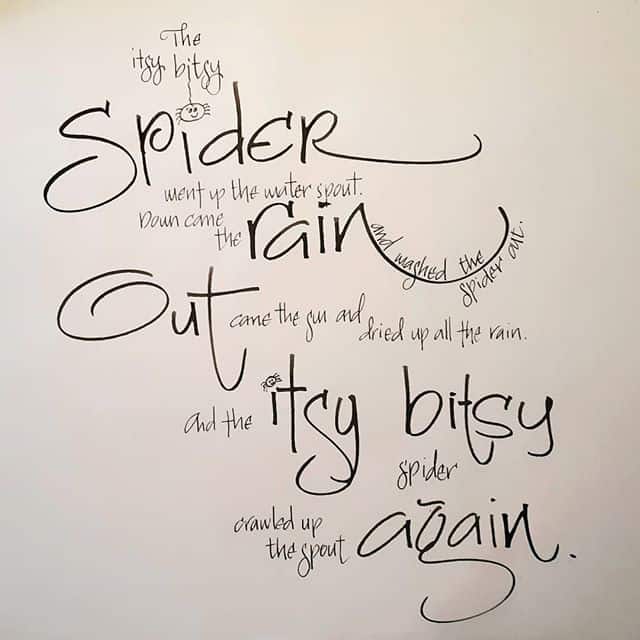 The
itsy bitsy
SPidER
went up the water spout.
Down came
the rain and washed the
spider out.
Out came the sun and
dried up all the rain.
and the itsy bitsy
spider
crawled up
the spout again.